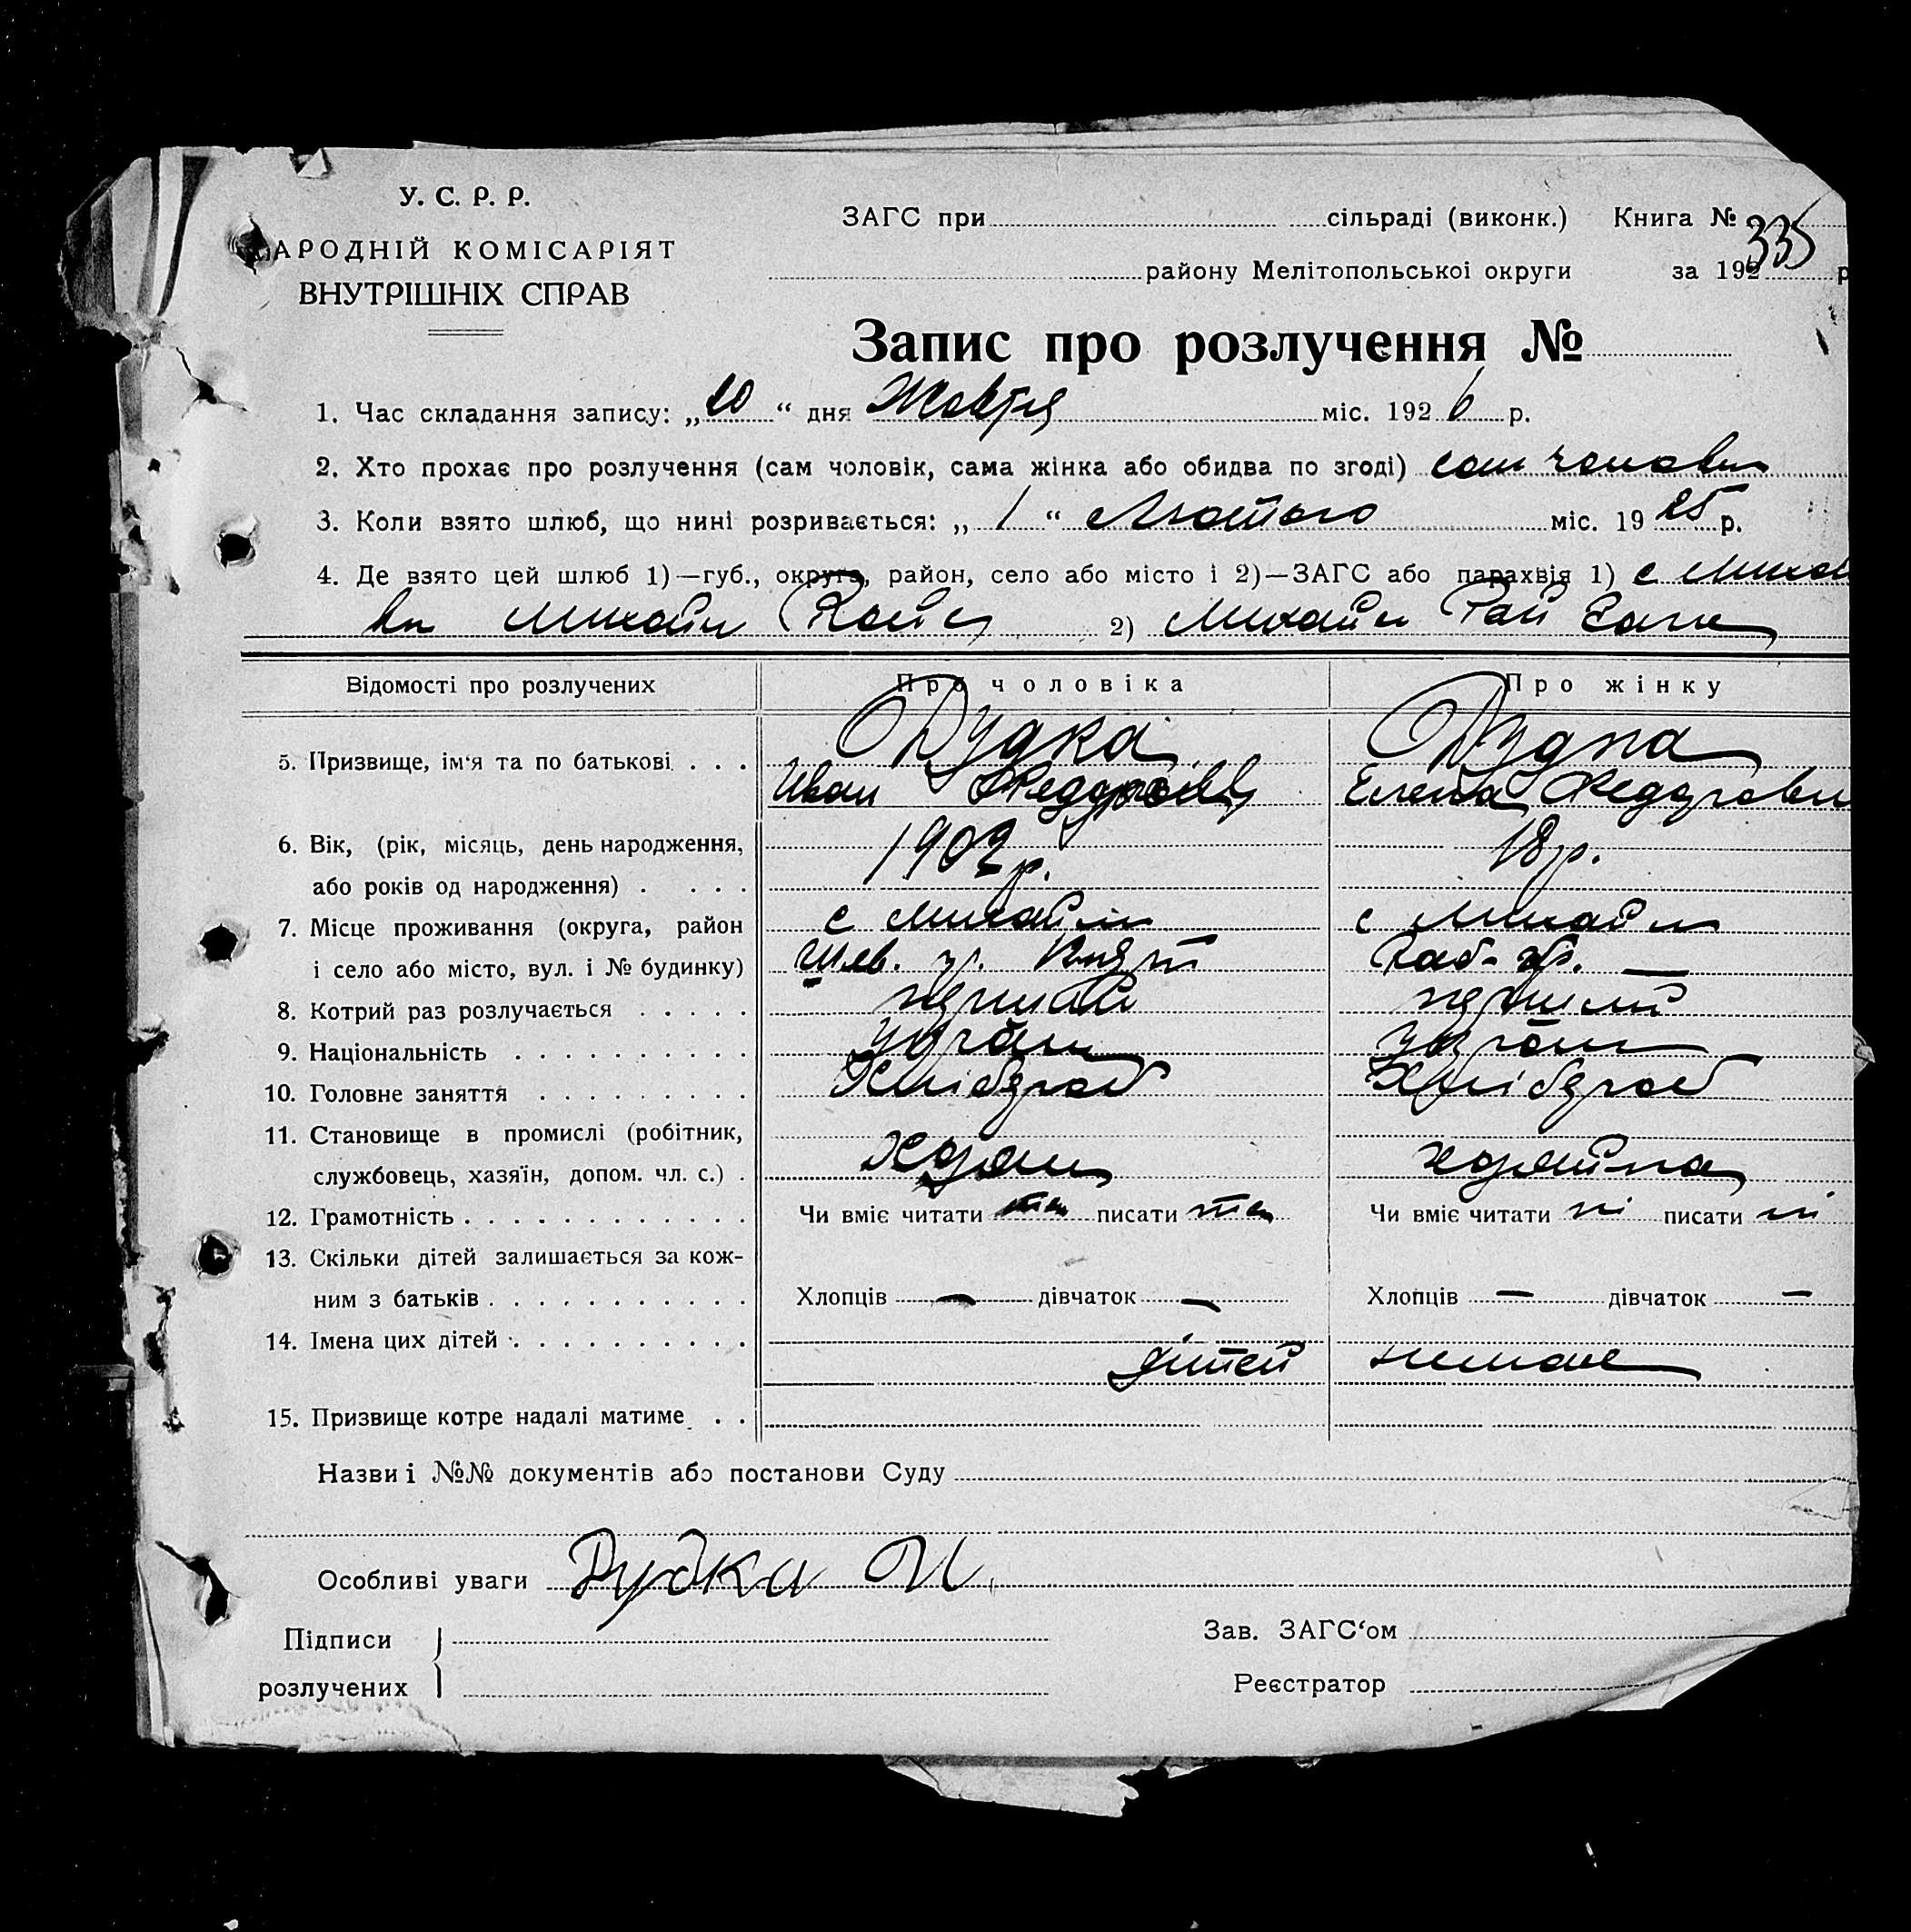 У. С. Р. Р.
АРОДНІЙ КОМІСАРІЯТ
ВНУТРІШНІХ СПРАВ
ЗАГС при сільраді (виконк.) Книга №
335
району Мелітопольської округи за 192 р
Запис про розлучення №
1. Час складання запису: „10“ дня Жовтня міс. 1926 р.
2. Хто прохає про розлучення (сам чоловік, сама жінка або обидва по згоді) сам чоловік
3. Коли взято шлюб, що нині розривається: „1“ Лютого міс. 1925 р.
4. Де взято цей шлюб 1)—губ., округа, район, село або місто і 2)—ЗАГС або парахвія 1) с Михай
Михайл 2) Михайл Рай Загс
Відомості про розлучених Про чоловіка Про жінку
5. Призвище, ім‘я та по батькові . . . Дудка Дудка
Иван Федоров Елена Федоровн
6. Вік, (рік, місяць, день народження, 1902 р. 18 р.
або років од народження) . . . .
7. Місце проживання (округа, район с Михайл с Михайл
і село або місто, вул. і № будинку)
8. Котрий раз розлучається . . . . . перший перший
9. Національність . . . . . . . . . . україн україн
10. Головне заняття . . . . . . . . . Хлібороб Хлібороб
11. Становище в промислі (робітник,
службовець, хазяїн, допом. чл. с.) .
12. Грамотність . . . . . . . . . . . . Чи вміє читати так писати так Чи вміє читати ні писати ні
13. Скільки дітей залишається за кож-
ним з батьків . . . . . . . . . . . Хлопців — дівчаток — Хлопців — дівчаток —
14. Імена цих дітей . . . . . . . . . .
дітей немає
15. Призвище котре надалі матиме . .
Назви і №№ документів або постанови Суду
Особливі уваги Дудка И.
Підписи
розлучених
Зав. ЗАГС‘ом
Реєстратор